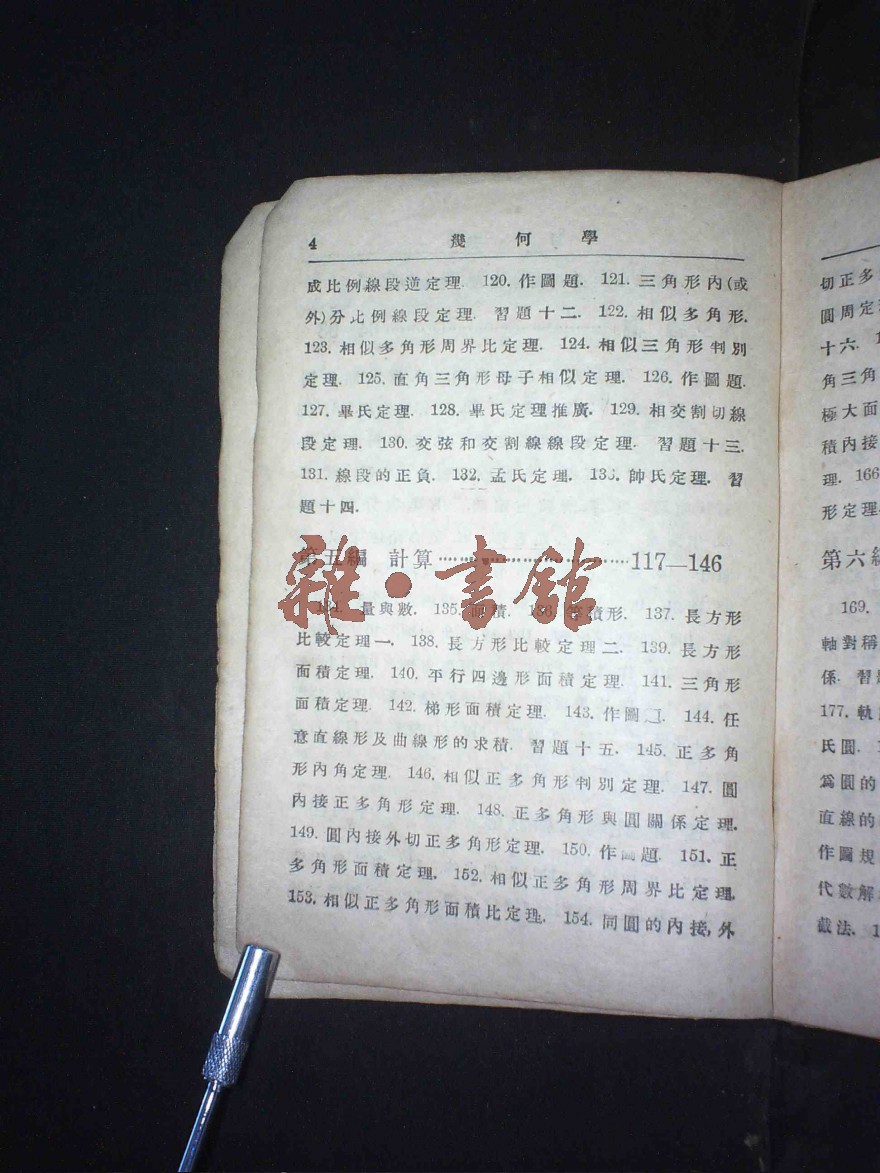 4 幾何學
成比例線段逆定理. 120. 作圖題. 121. 三角形內(或
外)分比例線段定理. 習題十二. 122. 相似多角形.
123. 相似多角形周界比定理. 124. 相似三角形判別
定理. 125. 直角三角形母子相似定理. 126. 作圖題.
127. 畢氏定理. 128. 畢氏定理推廣. 129. 相交割切線
段定理. 130. 交弦和交割線線段定理. 習題十三.
131. 線段的正負. 132. 孟氏定理. 133. 帥氏定理. 習
題十四.
第五編 計算 117—146
雜·書館
量與數. 135. 面積. 136. 等積形. 137. 長方形
比較定理一. 138. 長方形比較定理二. 139. 長方形
面積定理. 140. 平行四邊形面積定理. 141. 三角形
面積定理. 142. 梯形面積定理. 143. 作圖 144. 任
意直線形及曲線形的求積. 習題十五. 145. 正多角
形內角定理. 146. 相似正多角形判別定理. 147. 圓
內接正多角形定理. 148. 正多角形與圓關係定理.
149. 圓內接外切正多角形定理. 150. 作圖題. 151. 正
多角形面積定理. 152. 相似正多角形周界比定理.
153. 相似正多角形面積比定理. 154. 同圓的內接,外
切正多
圓周定
十六.
角三角
極大面
積內接
理. 166
形定理
第六編
169.
軸對稱
係. 習
177. 軌
氏圓.
爲圓的
直線的
作圖規
代數解
截法.